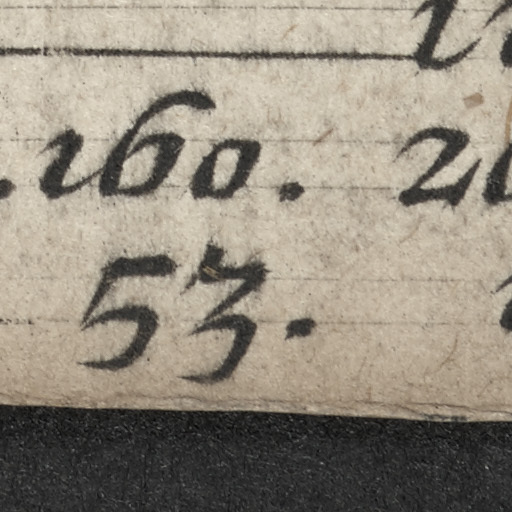 .160. 20
53.